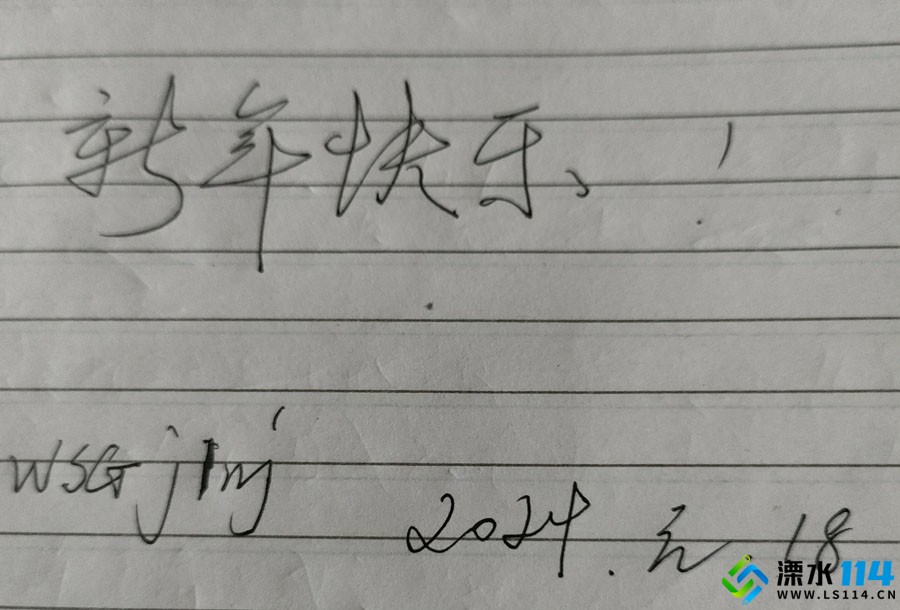 新年快乐!
WSGjlmj
2024.元.18
溧水114
WWW.LS114.CN